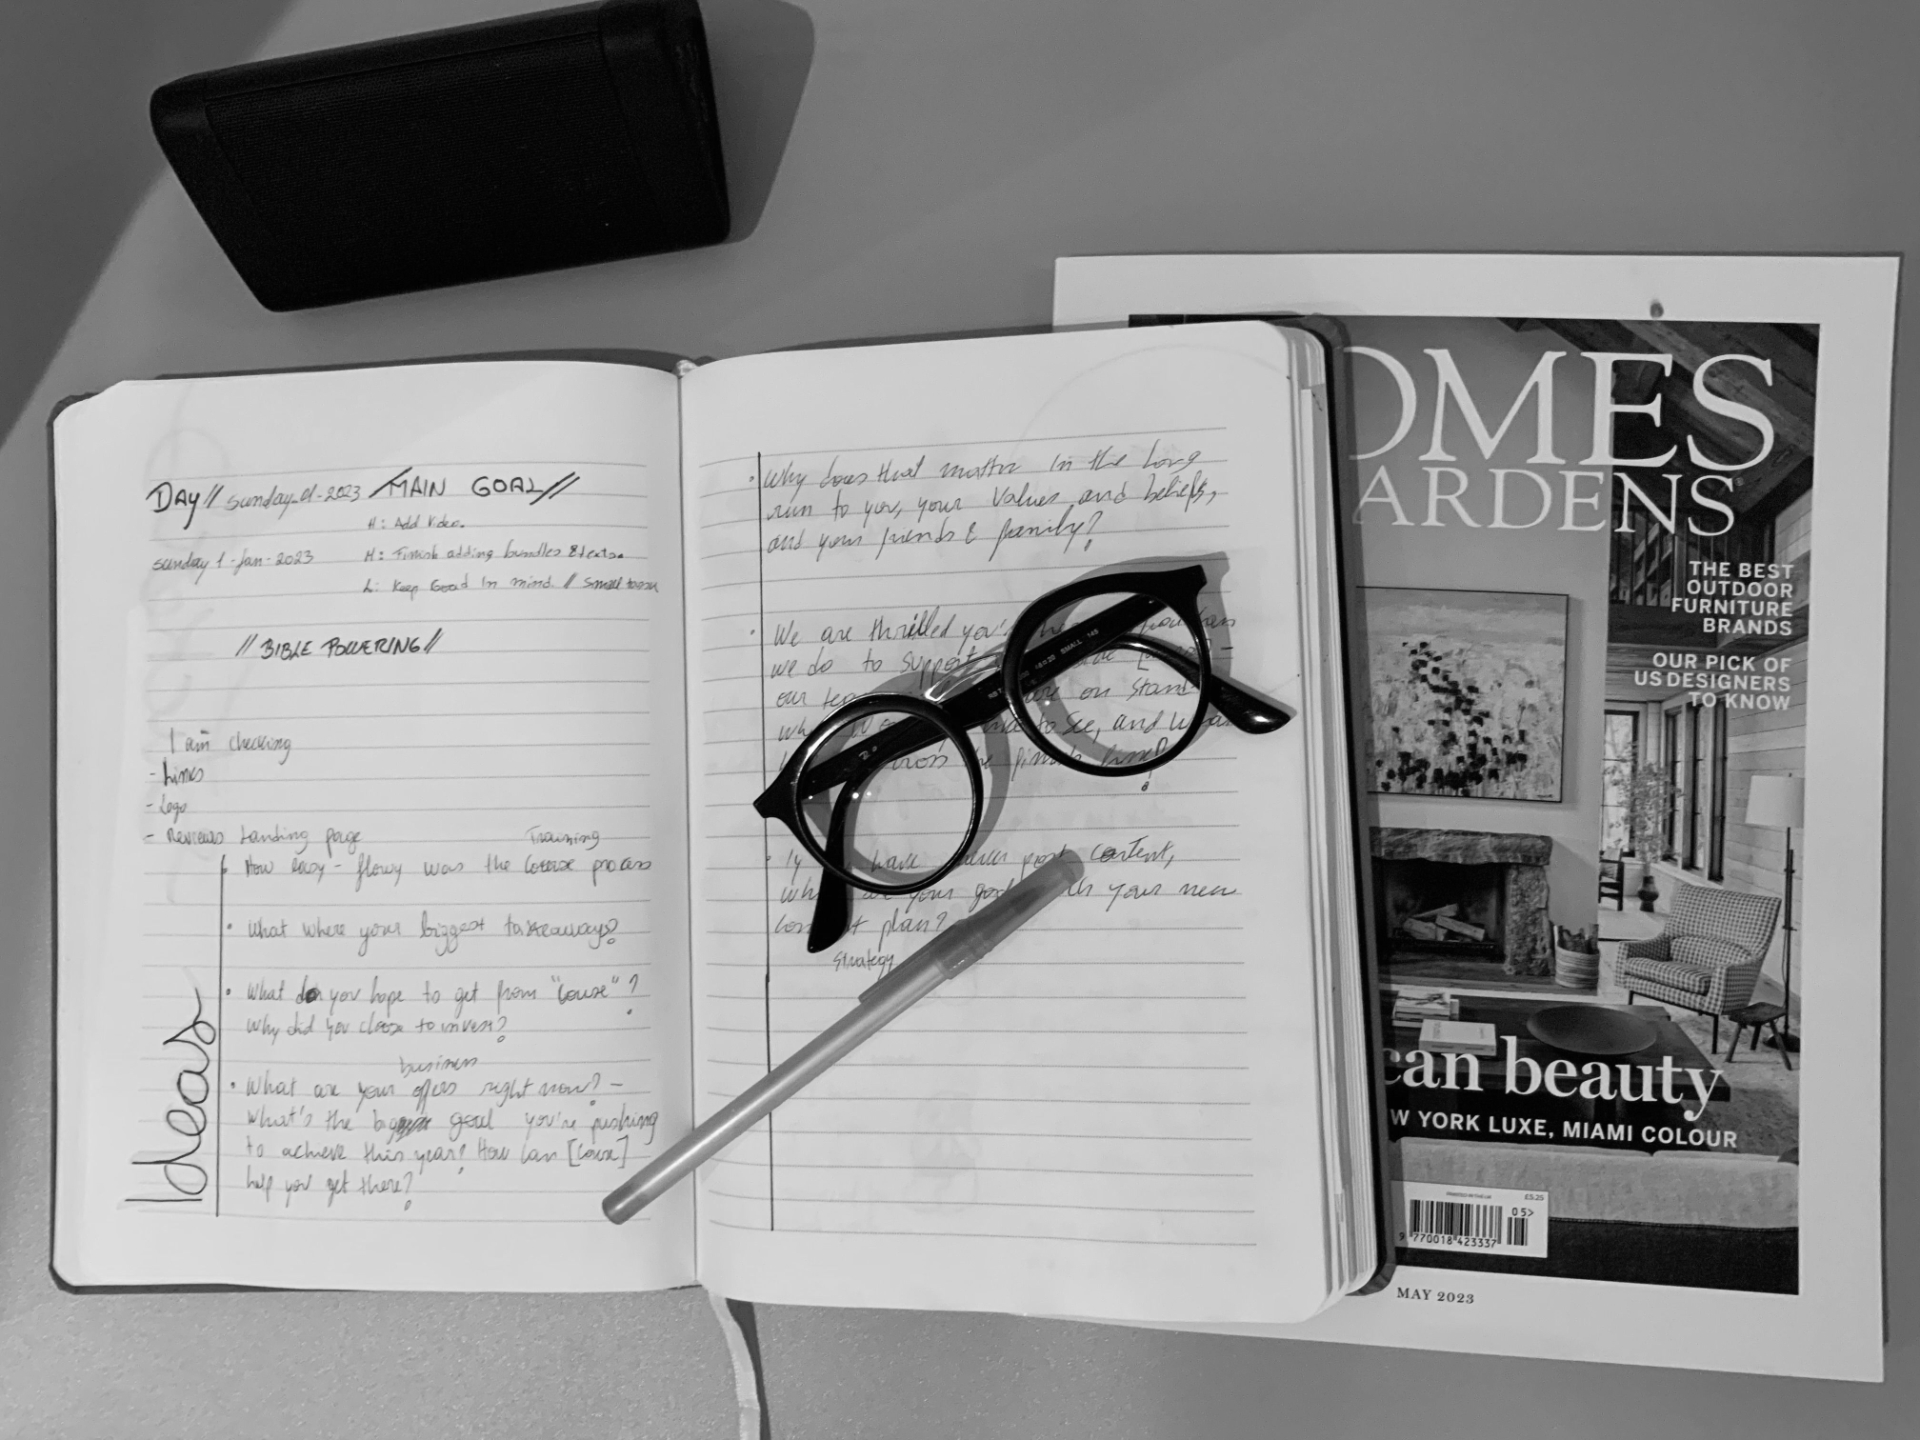 DAY// Sunday_01-2023 //MAIN GOAL//
H: Add Video.
Sunday 1-Jan-2023 H: Finish adding bundles &
L: Keep Goad In mind. //
// BIBLE POWERING //
I am checking
- Links
- Logo
- Reviews Landing page Training
How easy - flowy was the process
• What where your biggest takeaways?
• What do you hope to get from "Couse" ?
Why did you choose to invest?
business
• What are your offers right now? -
What's the big goal you're pushing
to achieve this year? How can [Couse]
help you get there?
Ideas
• Why does that matter in the Long
run to you, your Values and beliefs,
and your friends & family?
• We are thrilled you'
we do to support
our on
to See, and
the finish line?
have post content,
your your new
plan?
Strategy
SMALL 145
OMES
ARDENS
THE BEST
OUTDOOR
FURNITURE
BRANDS
OUR PICK OF
US DESIGNERS
TO KNOW
can beauty
W YORK LUXE, MIAMI COLOUR
£5.25
05>
9 770018 423337
MAY 2023